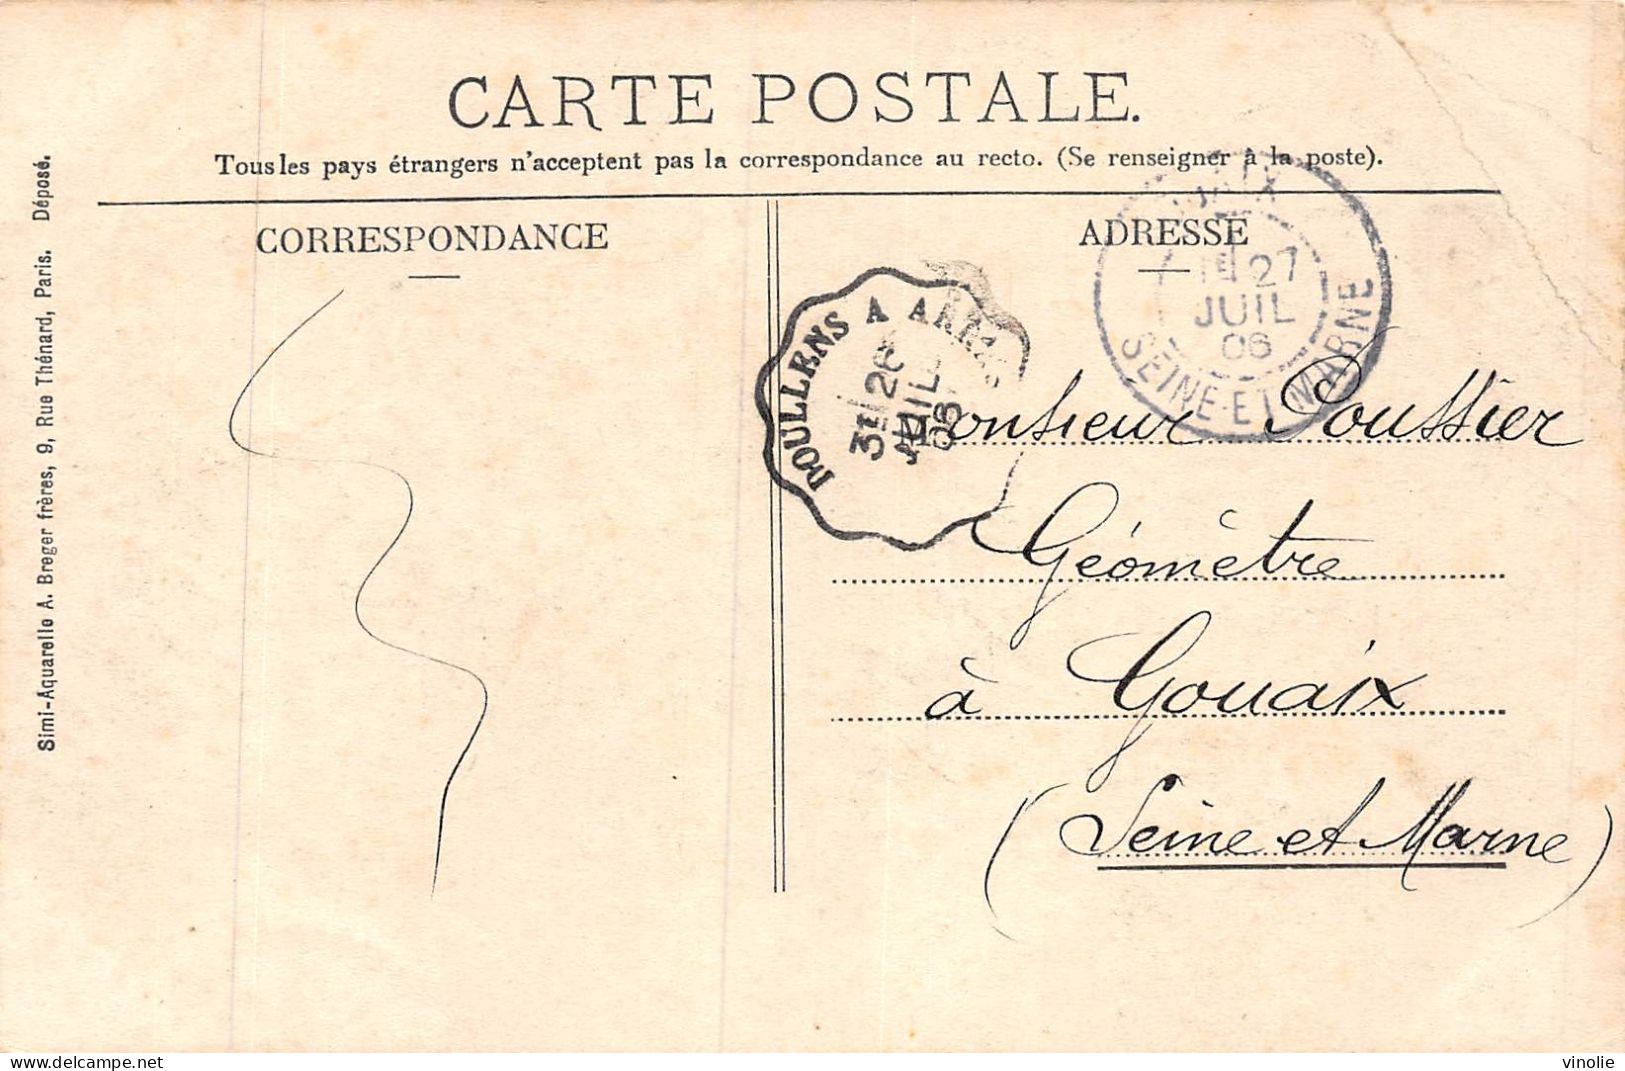 CARTE POSTALE.
Tous les pays étrangers n'acceptent pas la correspondance au recto. (Se renseigner à la poste).
CORRESPONDANCE
ADRESSE
Simi-Aquarelle A. Breger frères, 9, Rue Thénard, Paris. Déposé.
DOULLENS A ARRAS
3E 26
JUIL
06
27
JUIL
06
SEINE-ET-MARNE
Monsieur Poussier
Géomètre
à Gouaix
(Seine et Marne)
delcampe.net
vinolie